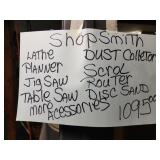 ShopSmith
Lathe Dust Colletor
Planner Scrol
Jig Saw Router
Table Saw Disc Sand
more Acessories
1095